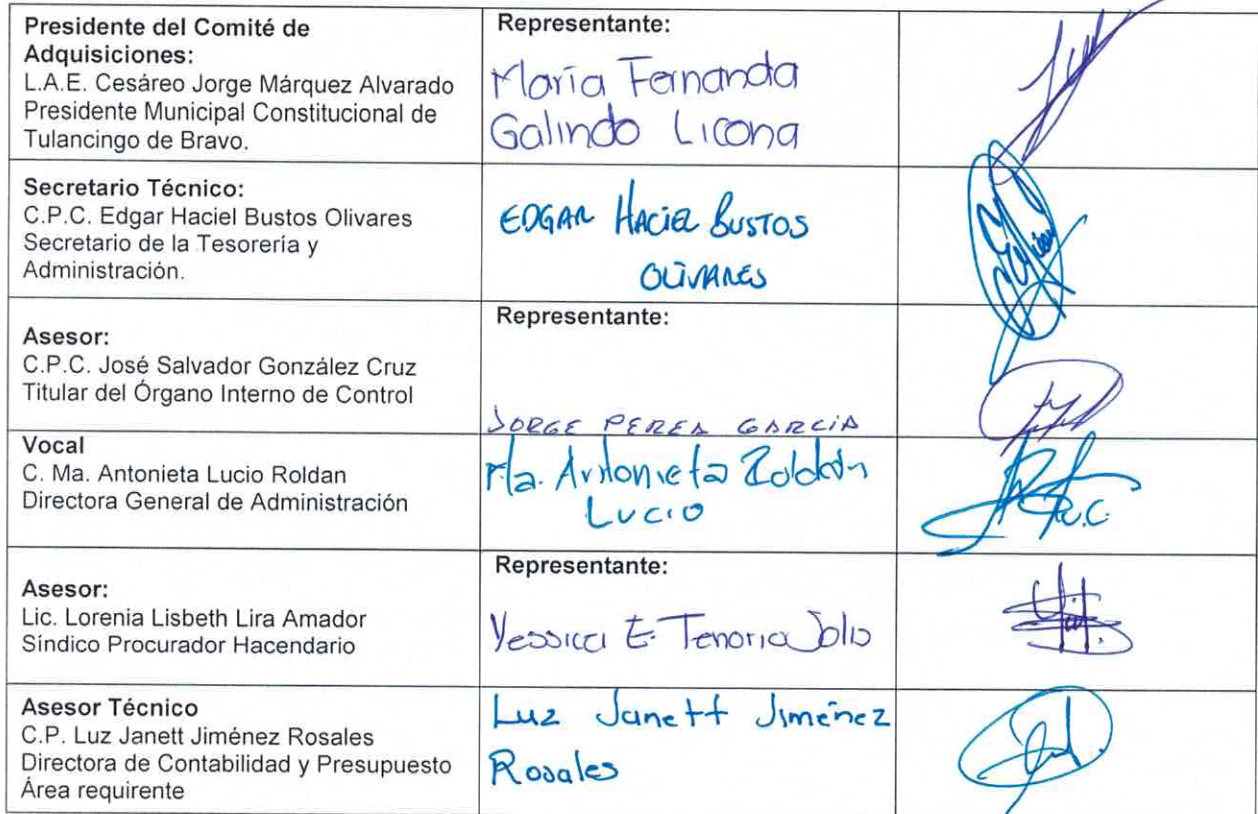 Presidente del Comité de
Adquisiciones:
L.A.E. Cesáreo Jorge Márquez Alvarado
Presidente Municipal Constitucional de
Tulancingo de Bravo.
Representante:
María Fernanda
Galindo Licona
Secretario Técnico:
C.P.C. Edgar Haciel Bustos Olivares
Secretario de la Tesorería y
Administración.
EDGAR HACIEL BUSTOS
OLIVARES
Asesor:
C.P.C. José Salvador González Cruz
Titular del Órgano Interno de Control
Representante:
JORGE PEREA GARCIA
Vocal
C. Ma. Antonieta Lucio Roldan
Directora General de Administración
Ma. Antonieta Roldán
Lucio
Asesor:
Lic. Lorenia Lisbeth Lira Amador
Síndico Procurador Hacendario
Representante:
Yessica E. Tenorio
Asesor Técnico
C.P. Luz Janett Jiménez Rosales
Directora de Contabilidad y Presupuesto
Área requirente
Luz Janett Jiménez
Rosales